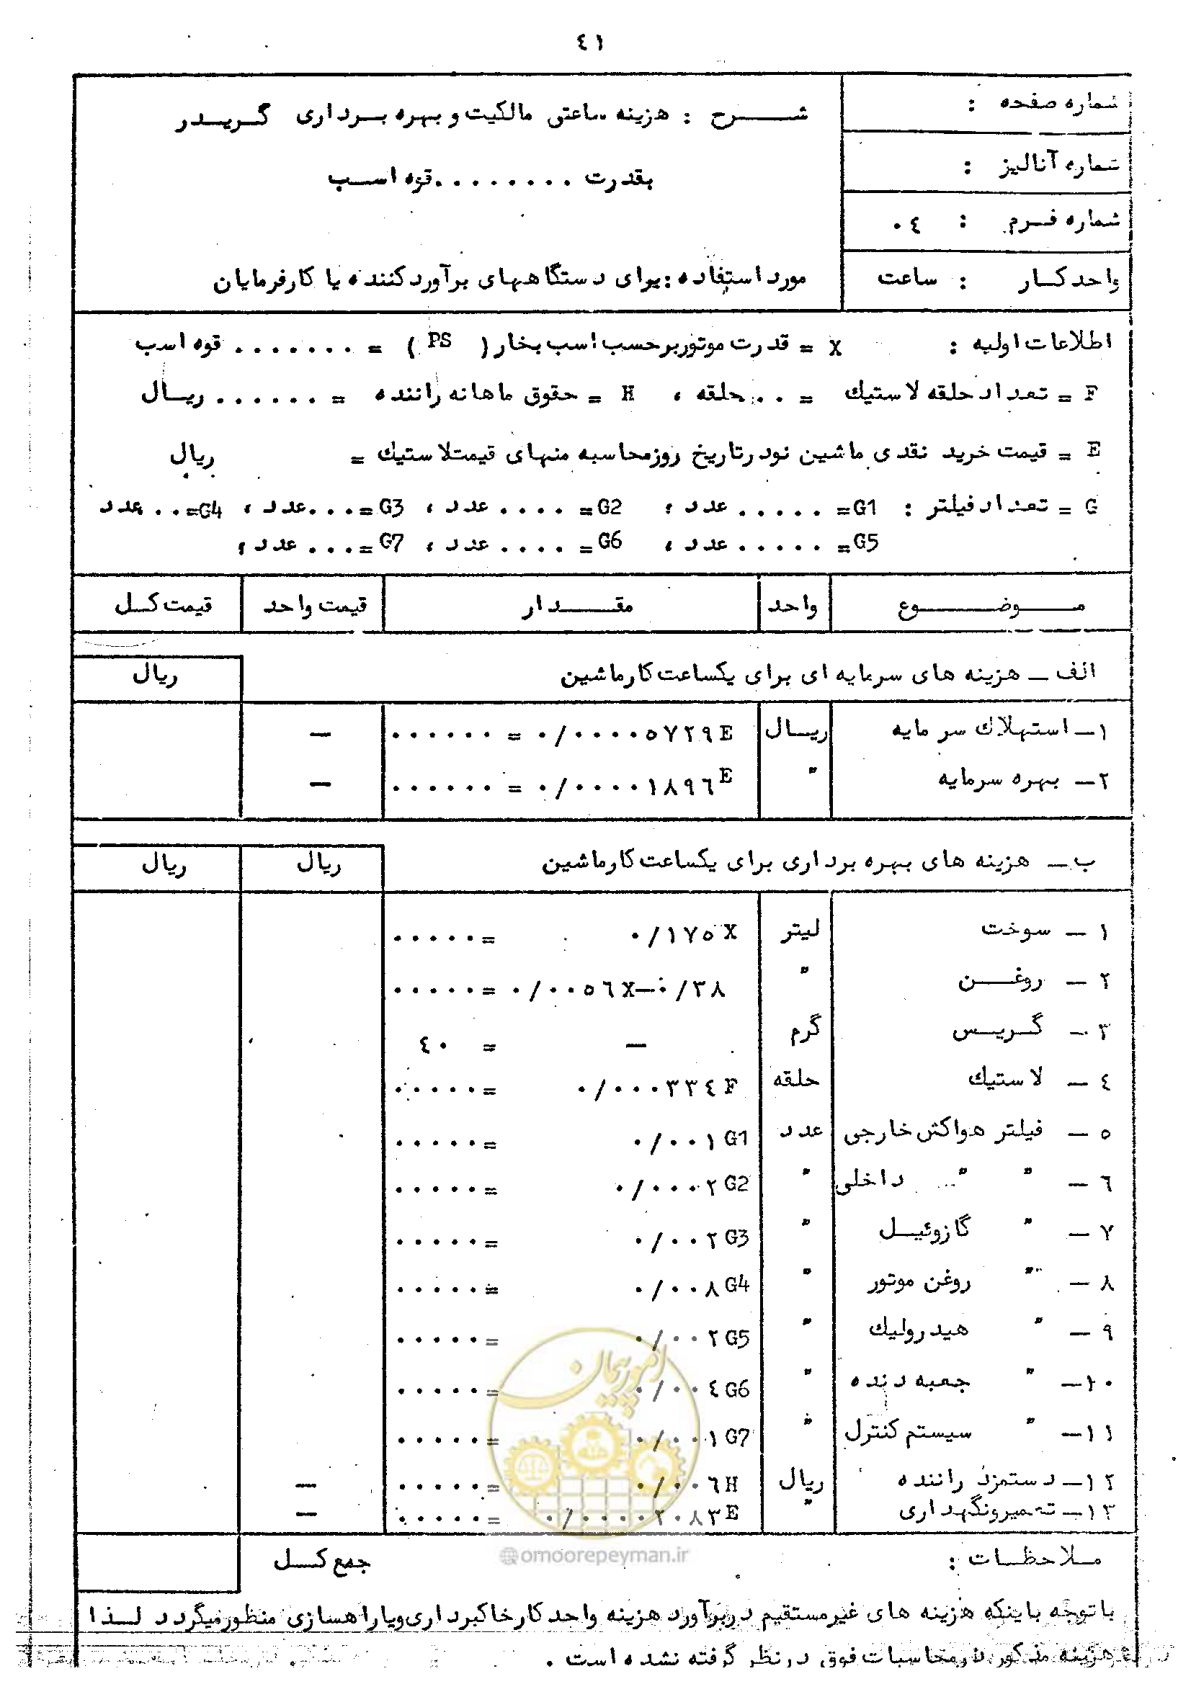 ٤١
شماره صفحه :
شماره آنالیز :
شماره فرم : ٠٤
واحد کار : ساعت
شرح : هزینه ساعتی مالکیت و بهره برداری گریدر
بقدرت ........ قوه اسب
مورد استفاده : برای دستگاههای برآورد کننده یا کارفرمایان
اطلاعات اولیه : X = قدرت موتور برحسب اسب بخار ( PS ) = ....... قوه اسب
F = تعداد حلقه لاستیك = ... حلقه ، H = حقوق ماهانه راننده = ...... ریال
E = قیمت خرید نقدی ماشین نو در تاریخ روز محاسبه منهای قیمت لاستیك = ریال
G = تعداد فیلتر : G1= ..... عدد ، G2= .... عدد ، G3= ... عدد ، G4= .. عدد
G5= ..... عدد ، G6= .... عدد ، G7= ... عدد ،
موضوع واحد مقدار قیمت واحد قیمت کل
الف ـ هزینه های سرمایه ای برای یکساعت کار ماشین ریال
١ـ استهلاك سرمایه ریال ٠/٠٠٠٠٥٧٢٩E = ...... —
٢ـ بهره سرمایه " ٠/٠٠٠٠١٨٩٦E = ...... —
ب ـ هزینه های بهره برداری برای یکساعت کار ماشین ریال ریال
١ ـ سوخت لیتر ٠/١٧٥X = .....
٢ ـ روغن " ٠/٠٠٥٦X—٠/٣٨ = .....
٣ ـ گریس گرم — = ٤٠
٤ ـ لاستیك حلقه ٠/٠٠٠٣٣٤F = .....
٥ ـ فیلتر هواکش خارجی عدد ٠/٠٠١G1 = .....
٦ ـ " " داخلی " ٠/٠٠٠٢G2 = .....
٧ ـ " گازوئیل " ٠/٠٠٢G3 = .....
٨ ـ " روغن موتور " ٠/٠٠٨G4 = .....
٩ ـ " هیدرولیك " ٠/٠٠٢G5 = .....
١٠ـ " جعبه دنده " ٠/٠٠٤G6 = .....
١١ـ " سیستم کنترل " ٠/٠٠١G7 = .....
١٢ـ دستمزد راننده ریال ٠/٠٠٦H = ..... —
١٣ـ تعمیرونگهداری " ٠/٠٠٠٠٢٠٨٣E = ..... —
امور پیمان
@omoorepeyman.ir
ملاحظات : جمع کل
با توجه باینکه هزینه های غیرمستقیم در برآورد هزینه واحد کار خاکبرداری ویا راهسازی منظور میگردد لذا
هزینه مذکور در محاسبات فوق در نظر گرفته نشده است .